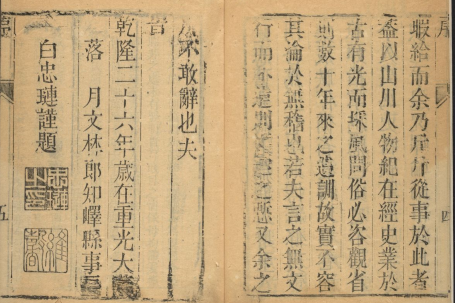 序
四
暇給而余乃斤斤從事於此者
蓋以山川人物紀在經史業於
古有光而採風問俗必咨觀省
則數十年來之遺訓故實不容
其淪於無稽也若夫言之無文
行而不遠則之愆又余之
所不敢辭也夫
旹
乾隆二十六年歲在重光大
落月文林郎知嶧縣事
白忠璉謹題
忠璉之印
五